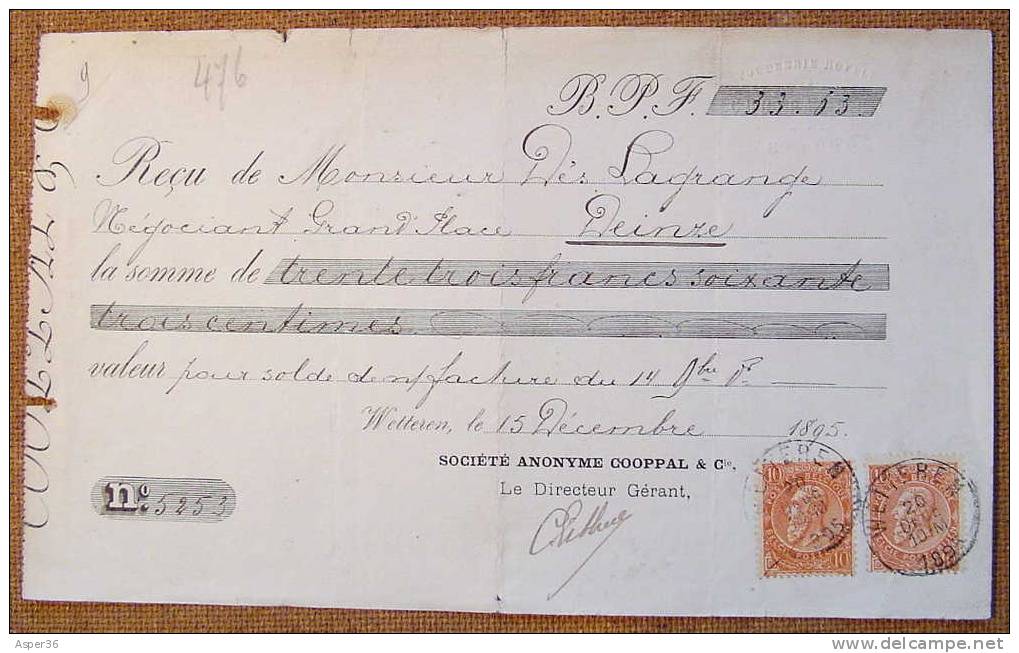 9
476
B.P.F. 33.63
Reçu de Monsieur Dés. Lagrange
Négociant Grand'Place Deinze
la somme de trente trois francs soixante
trois centimes
valeur pour solde de n/ facture du 14 9bre Dr
Wetteren, le 15 Décembre 1895.
SOCIÉTÉ ANONYME COOPPAL & Cie,
Le Directeur Gérant,
no. 5253
10 10
10
WETTEREN
26
DEC
10-M
1895
Asper36
delcampe.net